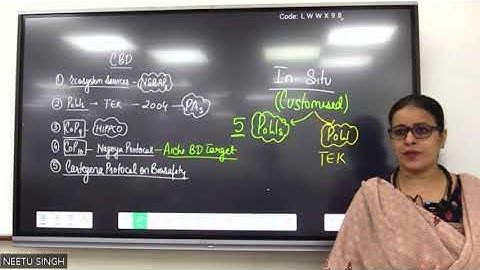 Code: L W W X 9 8
CBD
① Ecosystem Services - NSBAP
② PoWs → TEK - 2004 → PAs
③ CoP9 - HIPPCO
④ CoP10 - Nagoya Protocol - Aichi BD Target
⑤ Cartagena Protocol on Biosafety
In Situ
(Customised)
5 PoWs
PoW
TEK
NEETU SINGH